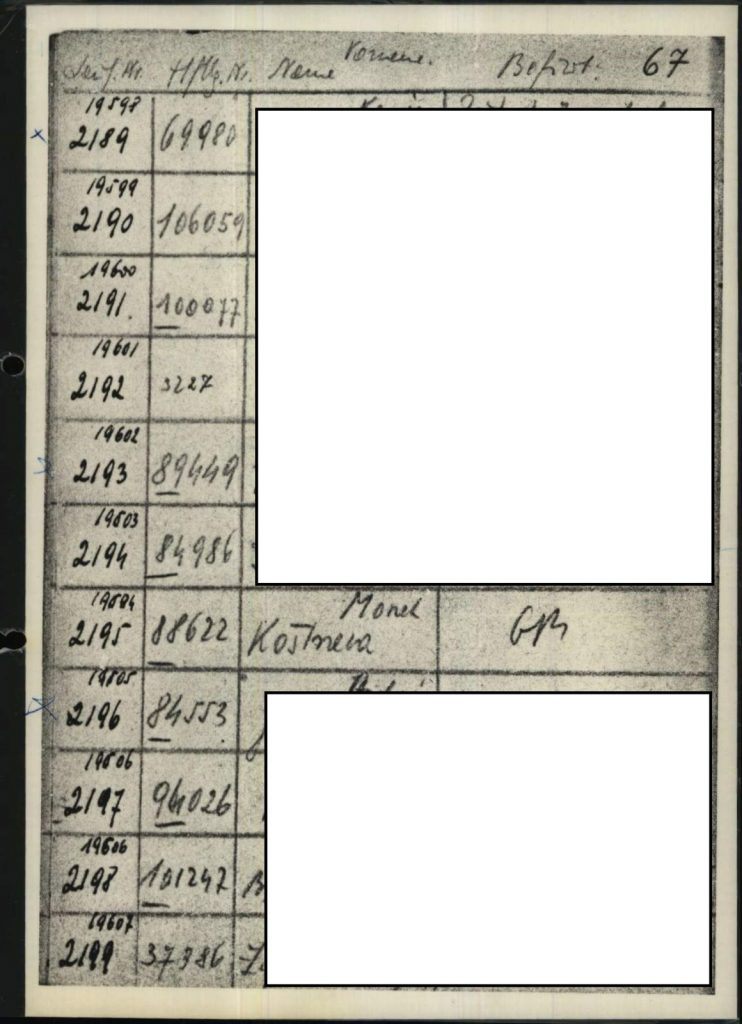 Lauf. Nr. Hftlg. Nr. Name Vorname. Befivet. 67
19598
2189 69980
19599
2190 106059
19600
2191. 100077
19601
2192 3227
19602
2193 89449
19603
2194 84986
19604 Monek
2195 88622 Kostnera
19605
2196 84553
19606
2197 94026
19606
2198 101247
19607
2199 37386